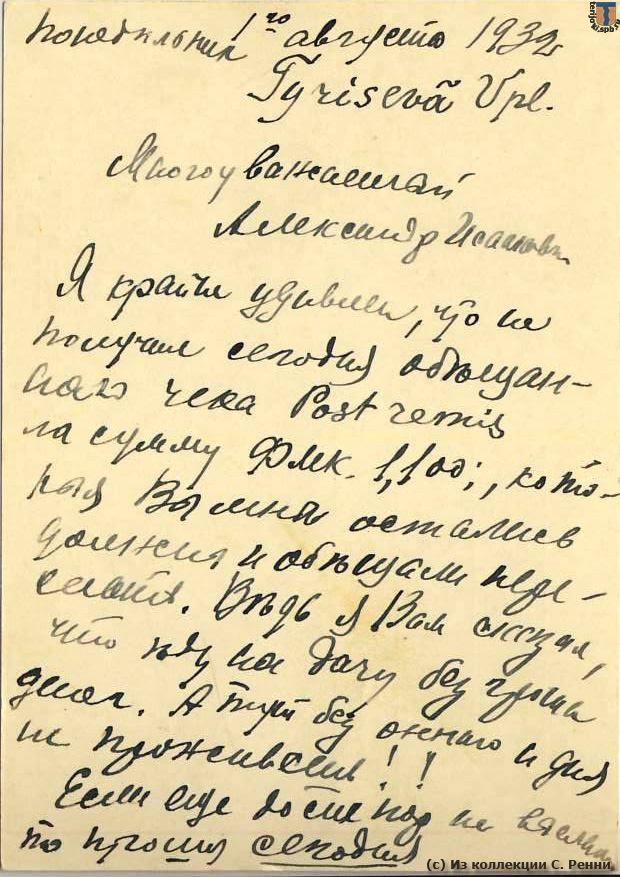 Понедѣльник 1го августа 1932
Tyrisevä Vpl.
Многоуважаемый
Александр Исаакович
Я крайне удивлен, что не
получил сегодня обѣщан-
наго чека Post remis
на сумму Фмк. 1,100;, кото-
рыя Вы мнѣ остались
должны и обѣщали пере-
слать. Вѣдь я Вам сказал,
что ѣду на дачу без гроша
денег. А тут без оннаго и дня
не проживешь!!
Если еще до сих пор не выслали,
то прошу сегодня
(c) Из коллекции С. Ренни